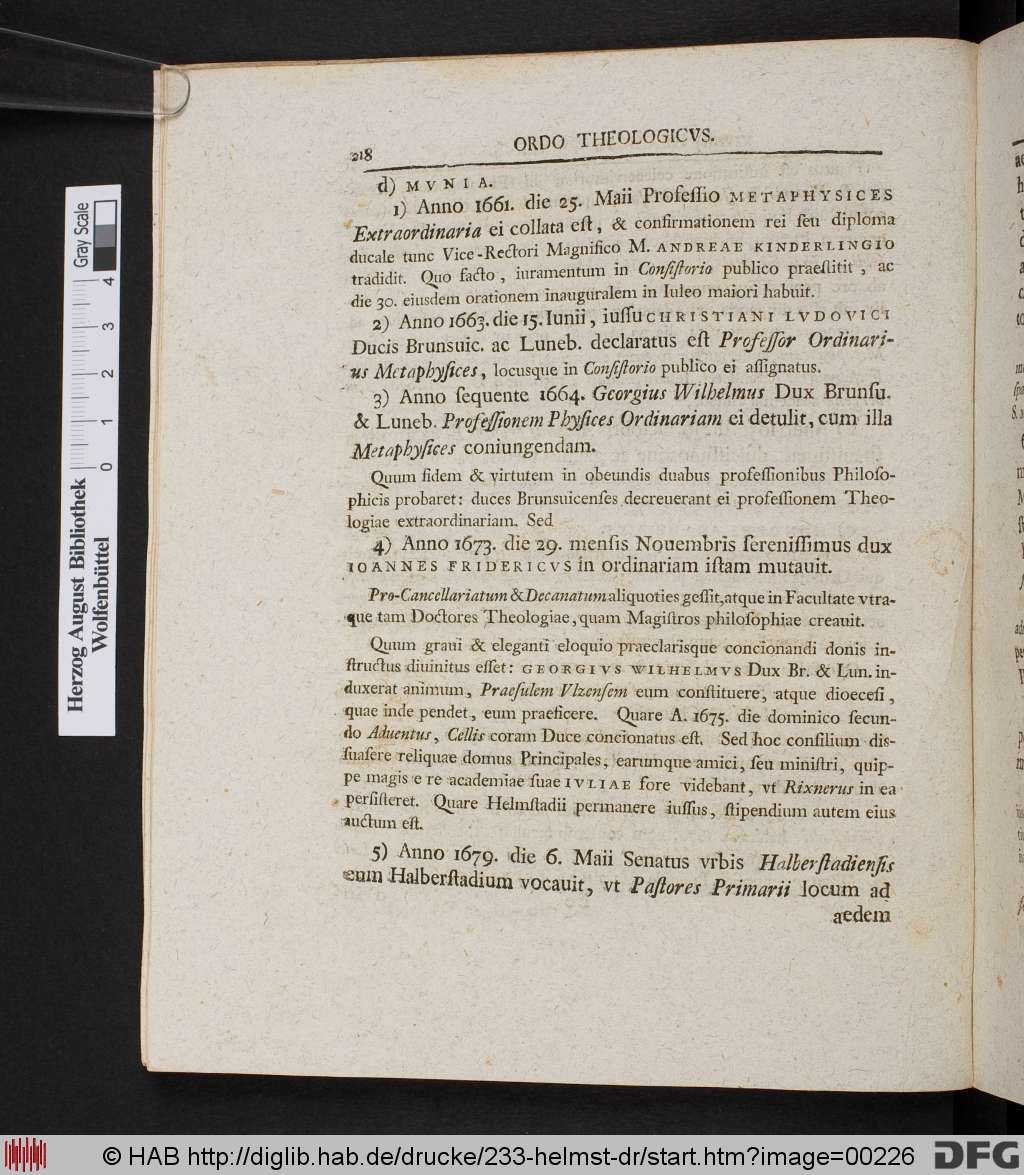 218
ORDO THEOLOGICVS.
d) MVNIA.
1) Anno 1661. die 25. Maii Profeſſio METAPHYSICES
Extraordinaria ei collata eſt, & confirmationem rei ſeu diploma
ducale tunc Vice-Rectori Magnifico M. ANDREAE KINDERLINGIO
tradidit. Quo facto, iuramentum in Conſiſtorio publico praeſtitit, ac
die 30. eiusdem orationem inauguralem in Iuleo maiori habuit.
2) Anno 1663. die 15. Iunii, iuſſu CHRISTIANI LVDOVICI
Ducis Brunsuic. ac Luneb. declaratus eſt Profeſſor Ordinari-
us Metaphyſices, locusque in Conſiſtorio publico ei aſſignatus.
3) Anno ſequente 1664. Georgius Wilhelmus Dux Brunſu.
& Luneb. Profeſſionem Phyſices Ordinariam ei detulit, cum illa
Metaphyſices coniungendam.
Quum fidem & virtutem in obeundis duabus profeſſionibus Philoſo-
phicis probaret: duces Brunsuicenſes decreuerant ei profeſſionem Theo-
logiae extraordinariam. Sed
4) Anno 1673. die 29. menſis Nouembris ſereniſſimus dux
IOANNES FRIDERICVS in ordinariam iſtam mutauit.
Pro-Cancellariatum & Decanatum aliquoties geſſit, atque in Facultate vtra-
que tam Doctores Theologiae, quam Magiſtros philoſophiae creauit.
Quum graui & eleganti eloquio praeclarisque concionandi donis in-
ſtructus diuinitus eſſet: GEORGIVS WILHELMVS Dux Br. & Lun. in-
duxerat animum, Praeſulem Vlzenſem eum conſtituere, atque dioeceſi,
quae inde pendet, eum praeficere. Quare A. 1675. die dominico ſecun-
do Aduentus, Cellis coram Duce concionatus eſt. Sed hoc conſilium dis-
ſuaſere reliquae domus Principales, earumque amici, ſeu miniſtri, quip-
pe magis e re academiae ſuae IVLIAE fore videbant, vt Rixnerus in ea
perſiſteret. Quare Helmſtadii permanere iuſſus, ſtipendium autem eius
auctum eſt.
5) Anno 1679. die 6. Maii Senatus vrbis Halberſtadienſis
eum Halberſtadium vocauit, vt Paſtores Primarii locum ad
aedem
Gray Scale
0 1 2 3 4
Herzog August Bibliothek
Wolfenbüttel
© HAB http://diglib.hab.de/drucke/233-helmst-dr/start.htm?image=00226
DFG